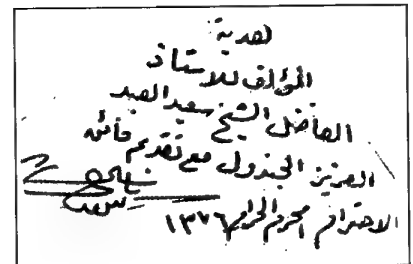 هدية
المؤلف للاستاذ
الفاضل الشيخ سعيد العبد
العزيز الجندول مع تقديم فائق
الاحترام محرم الحرام ١٣٧٦